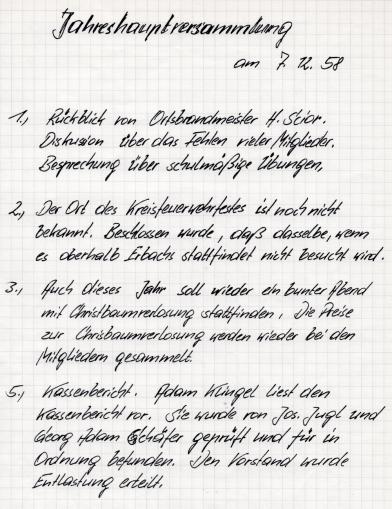 Jahreshauptversammlung
am 7. 12. 58
1., Rückblick von Ortsbrandmeister H. Scior.
Diskusion über das Fehlen vieler Mitglieder.
Besprechung über schulmäßige Übungen,
2., Der Ort des Kreisfeuerwehrfestes ist noch nicht
bekannt. Beschlossen wurde, daß dasselbe, wenn
es oberhalb Erbachs stattfindet nicht besucht wird.
3., Auch dieses Jahr soll wieder ein bunter Abend
mit Christbaumverlosung stattfinden, Die Preise
zur Chrisbaumverlosung werden wieder bei den
Mitgliedern gesammelt.
5., Kassenbericht. Adam Küngel liest den
Kassenbericht vor. Sie wurde von Jos. Jugl und
Georg Adam Schäfer geprüft und für in
Ordnung befunden. Den Vorstand wurde
Entlastung erteilt.